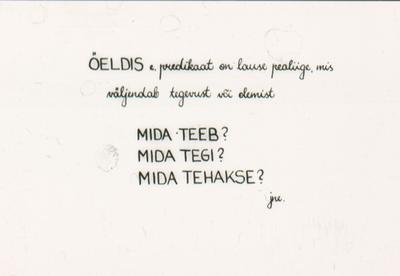 ÖELDIS e. predikaat on lause pealiige, mis
väljendab tegevust või olemist
MIDA TEEB?
MIDA TEGI?
MIDA TEHAKSE?
jne.